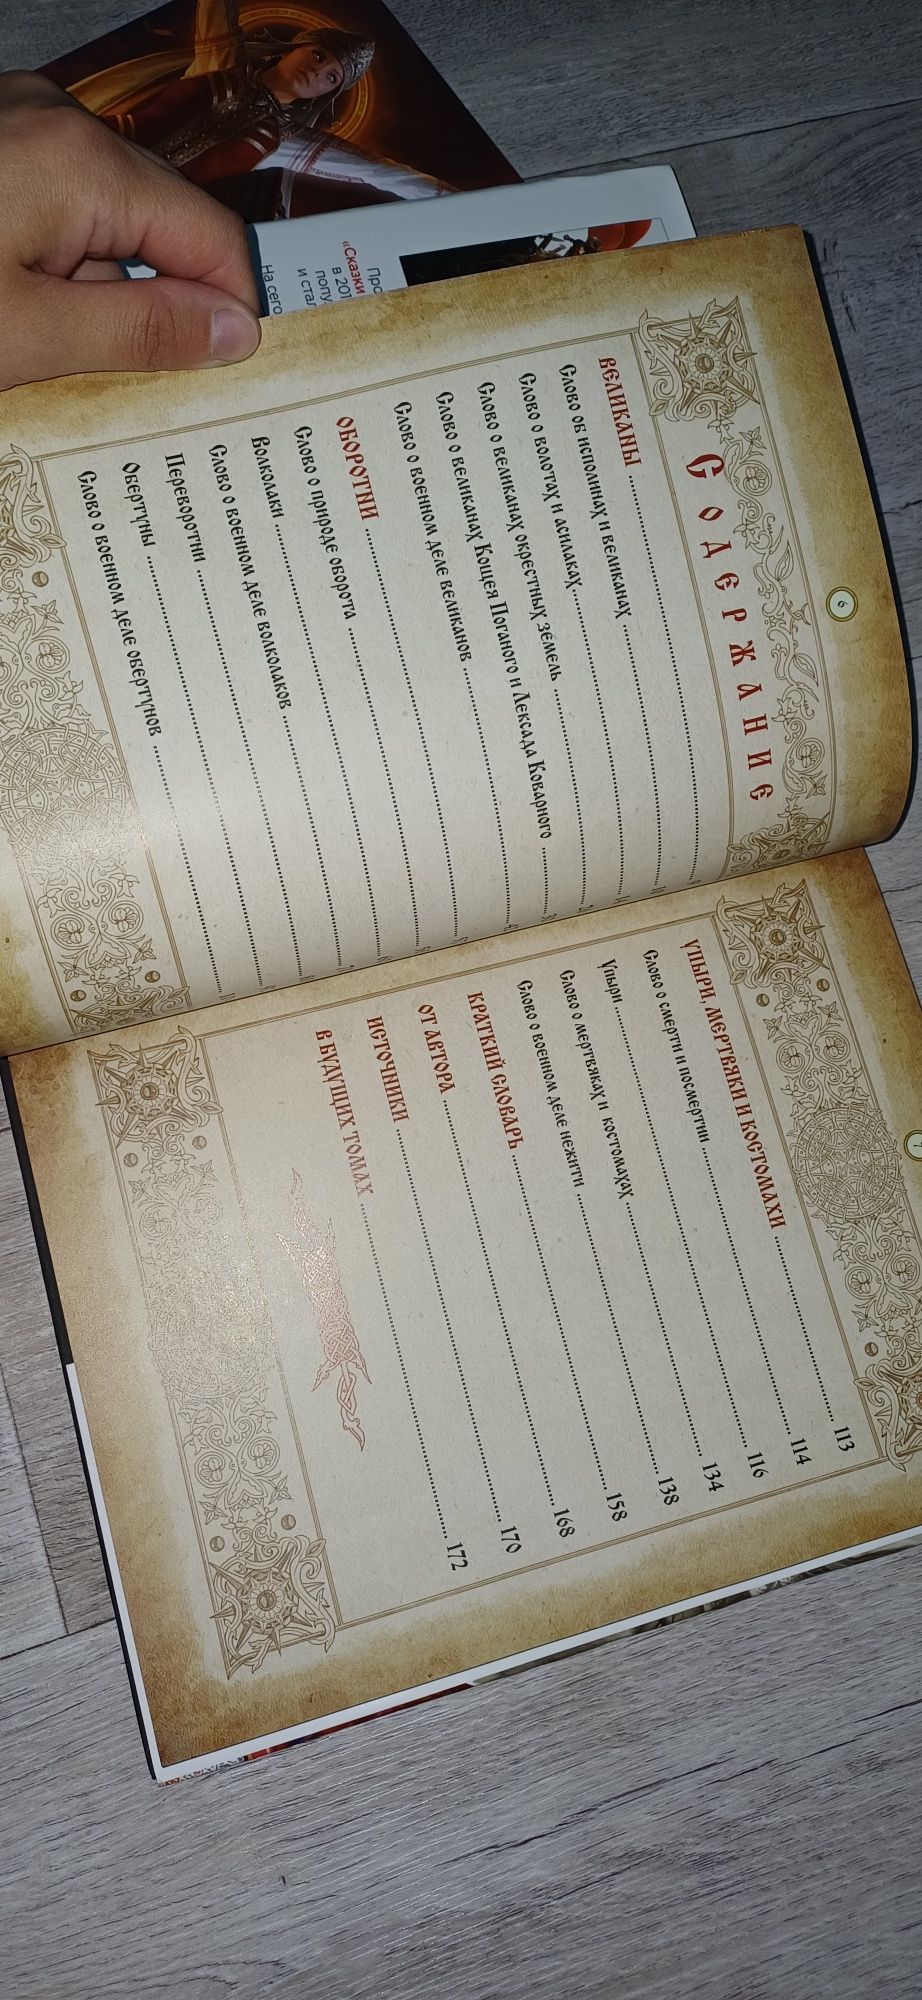 «Сказки
На сего
6
Содержание
ВЕЛИКАНЫ
Слово об исполинах и великанах
Слово о волотах и асилаках
Слово о великанах окрестных земель
Слово о великанах Кощея Поганого и Лексада Коварного
Слово о военном деле великанов
ОБОРОТНИ
Слово о природе оборота
Волколаки
Слово о военном деле волколаков
Переворотни
Обертуны
Слово о военном деле обертунов
7
УПЫРИ, МЕРТВЯКИ И КОСТОМАХИ 113
Слово о смерти и посмертии 114
Упыри 116
Слово о мертвяках и костомахах 134
Слово о военном деле нежити 138
КРАТКИЙ СЛОВАРЬ 158
ОТ АВТОРА 168
ИСТОЧНИКИ 170
В БУДУЩИХ ТОМАХ 172